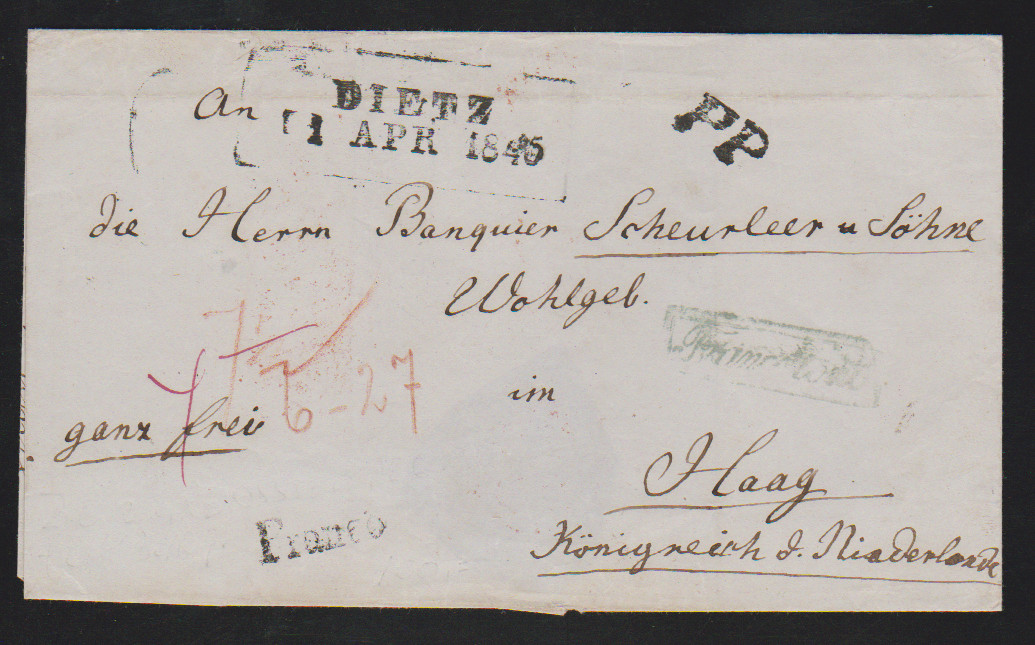 An
DIETZ
1 APR 1845
PP
die Herrn Banquier Scheurleer u Söhne
Wohlgeb.
6-27
im
ganz frei
Haag
Franco
Königreich d. Niederlande